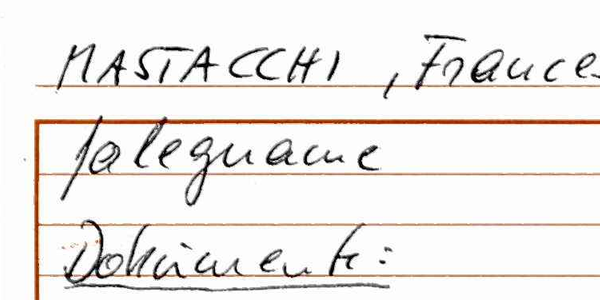 MASTACCHI, Frances
falegname
Dokumente: